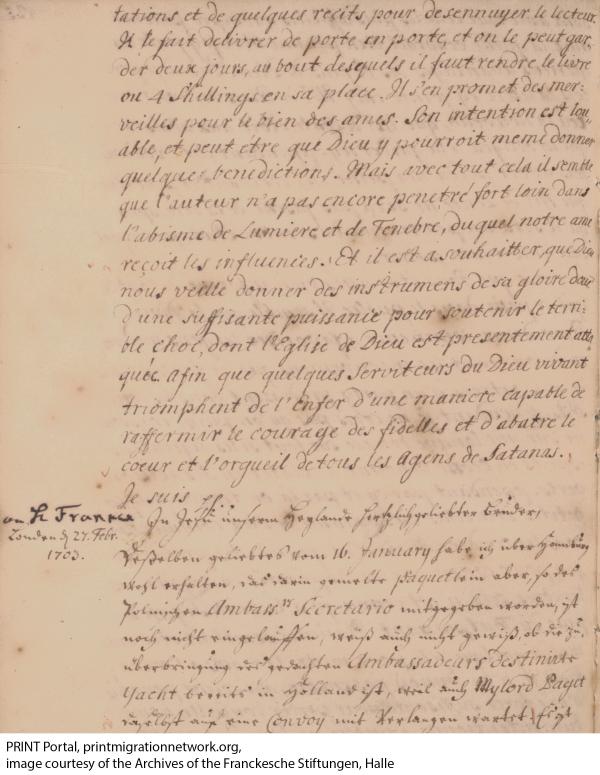 tations, et de quelques recits pour desennuyer le lecteur.
Il le fait delivrer de porte en porte, et on le peut gar-
der deux jours, au bout desquels il faut rendre le livre
ou 4 Shillings en sa place. Il s'en promet des mer:
veilles pour le bien des ames. Son intention est lou,
able, et peut être que Dieu y pourroit meme donner
quelques benedictions. Mais avec tout cela il semble
que l'auteur n'a pas encore penetré fort loin dans
l'abisme de Lumiere et de Tenebre, duquel notre ame
reçoit les influences. Et il est a souhaitter, que Dieu
nous veille donner des instrumens de sa gloire doué
d'une suffisante puissance pour soutenir le terri:
ble choc, dont l'Eglise de Dieu est presentement atta
quée. afin que quelques Serviteurs du Dieu vivant
triomphent de l'enfer d'une maniere capable de
raffermir le courage des fidelles et d'abatre le
coeur et l'orgueil de tous les Agens de Satanas.
Je suis
an H Franca
Londen d 27. Febr.
1703.
In Jesu unserm Heylande hertzlich geliebter Bruder,
Desselben geliebtes vom 16. January habe ich über Hamburg
wohl erhalten, das darin gemelte paquetlein aber, so des
Polnischen Ambass. Secretario mitgegeben worden, ist
noch nicht eingelauffen, weiß auch nicht gewiß, ob die zu
überbringung des gedachten Ambassadeurs destinirte
Yacht bereits in Holland ist, weil auch Mylord Paget
daselbst auf eine Convoy mit Verlangen wartet.
PRINT Portal, printmigrationnetwork.org,
image courtesy of the Archives of the Franckesche Stiftungen, Halle